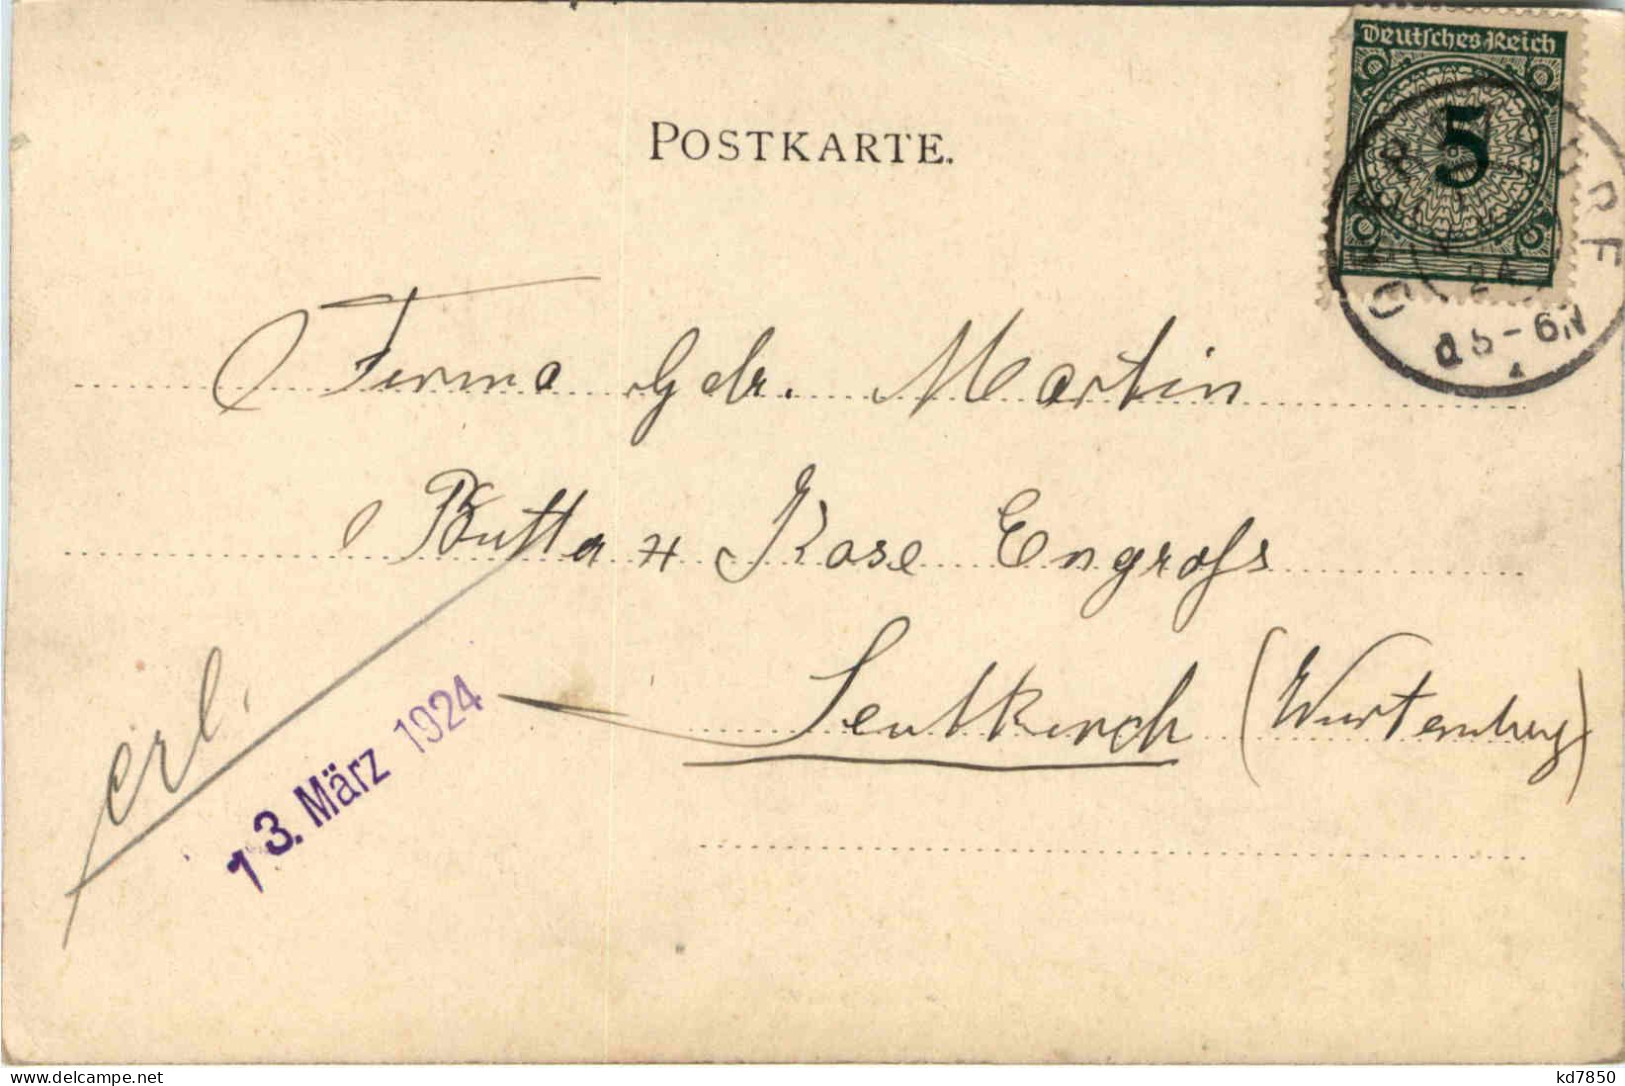 POSTKARTE.
Deutsches Reich
5
24
5-6N
Firma Gebr. Martin
Butter u Käse Engross
Leutkirch (Württemberg)
erl.
13. März 1924
kd7850